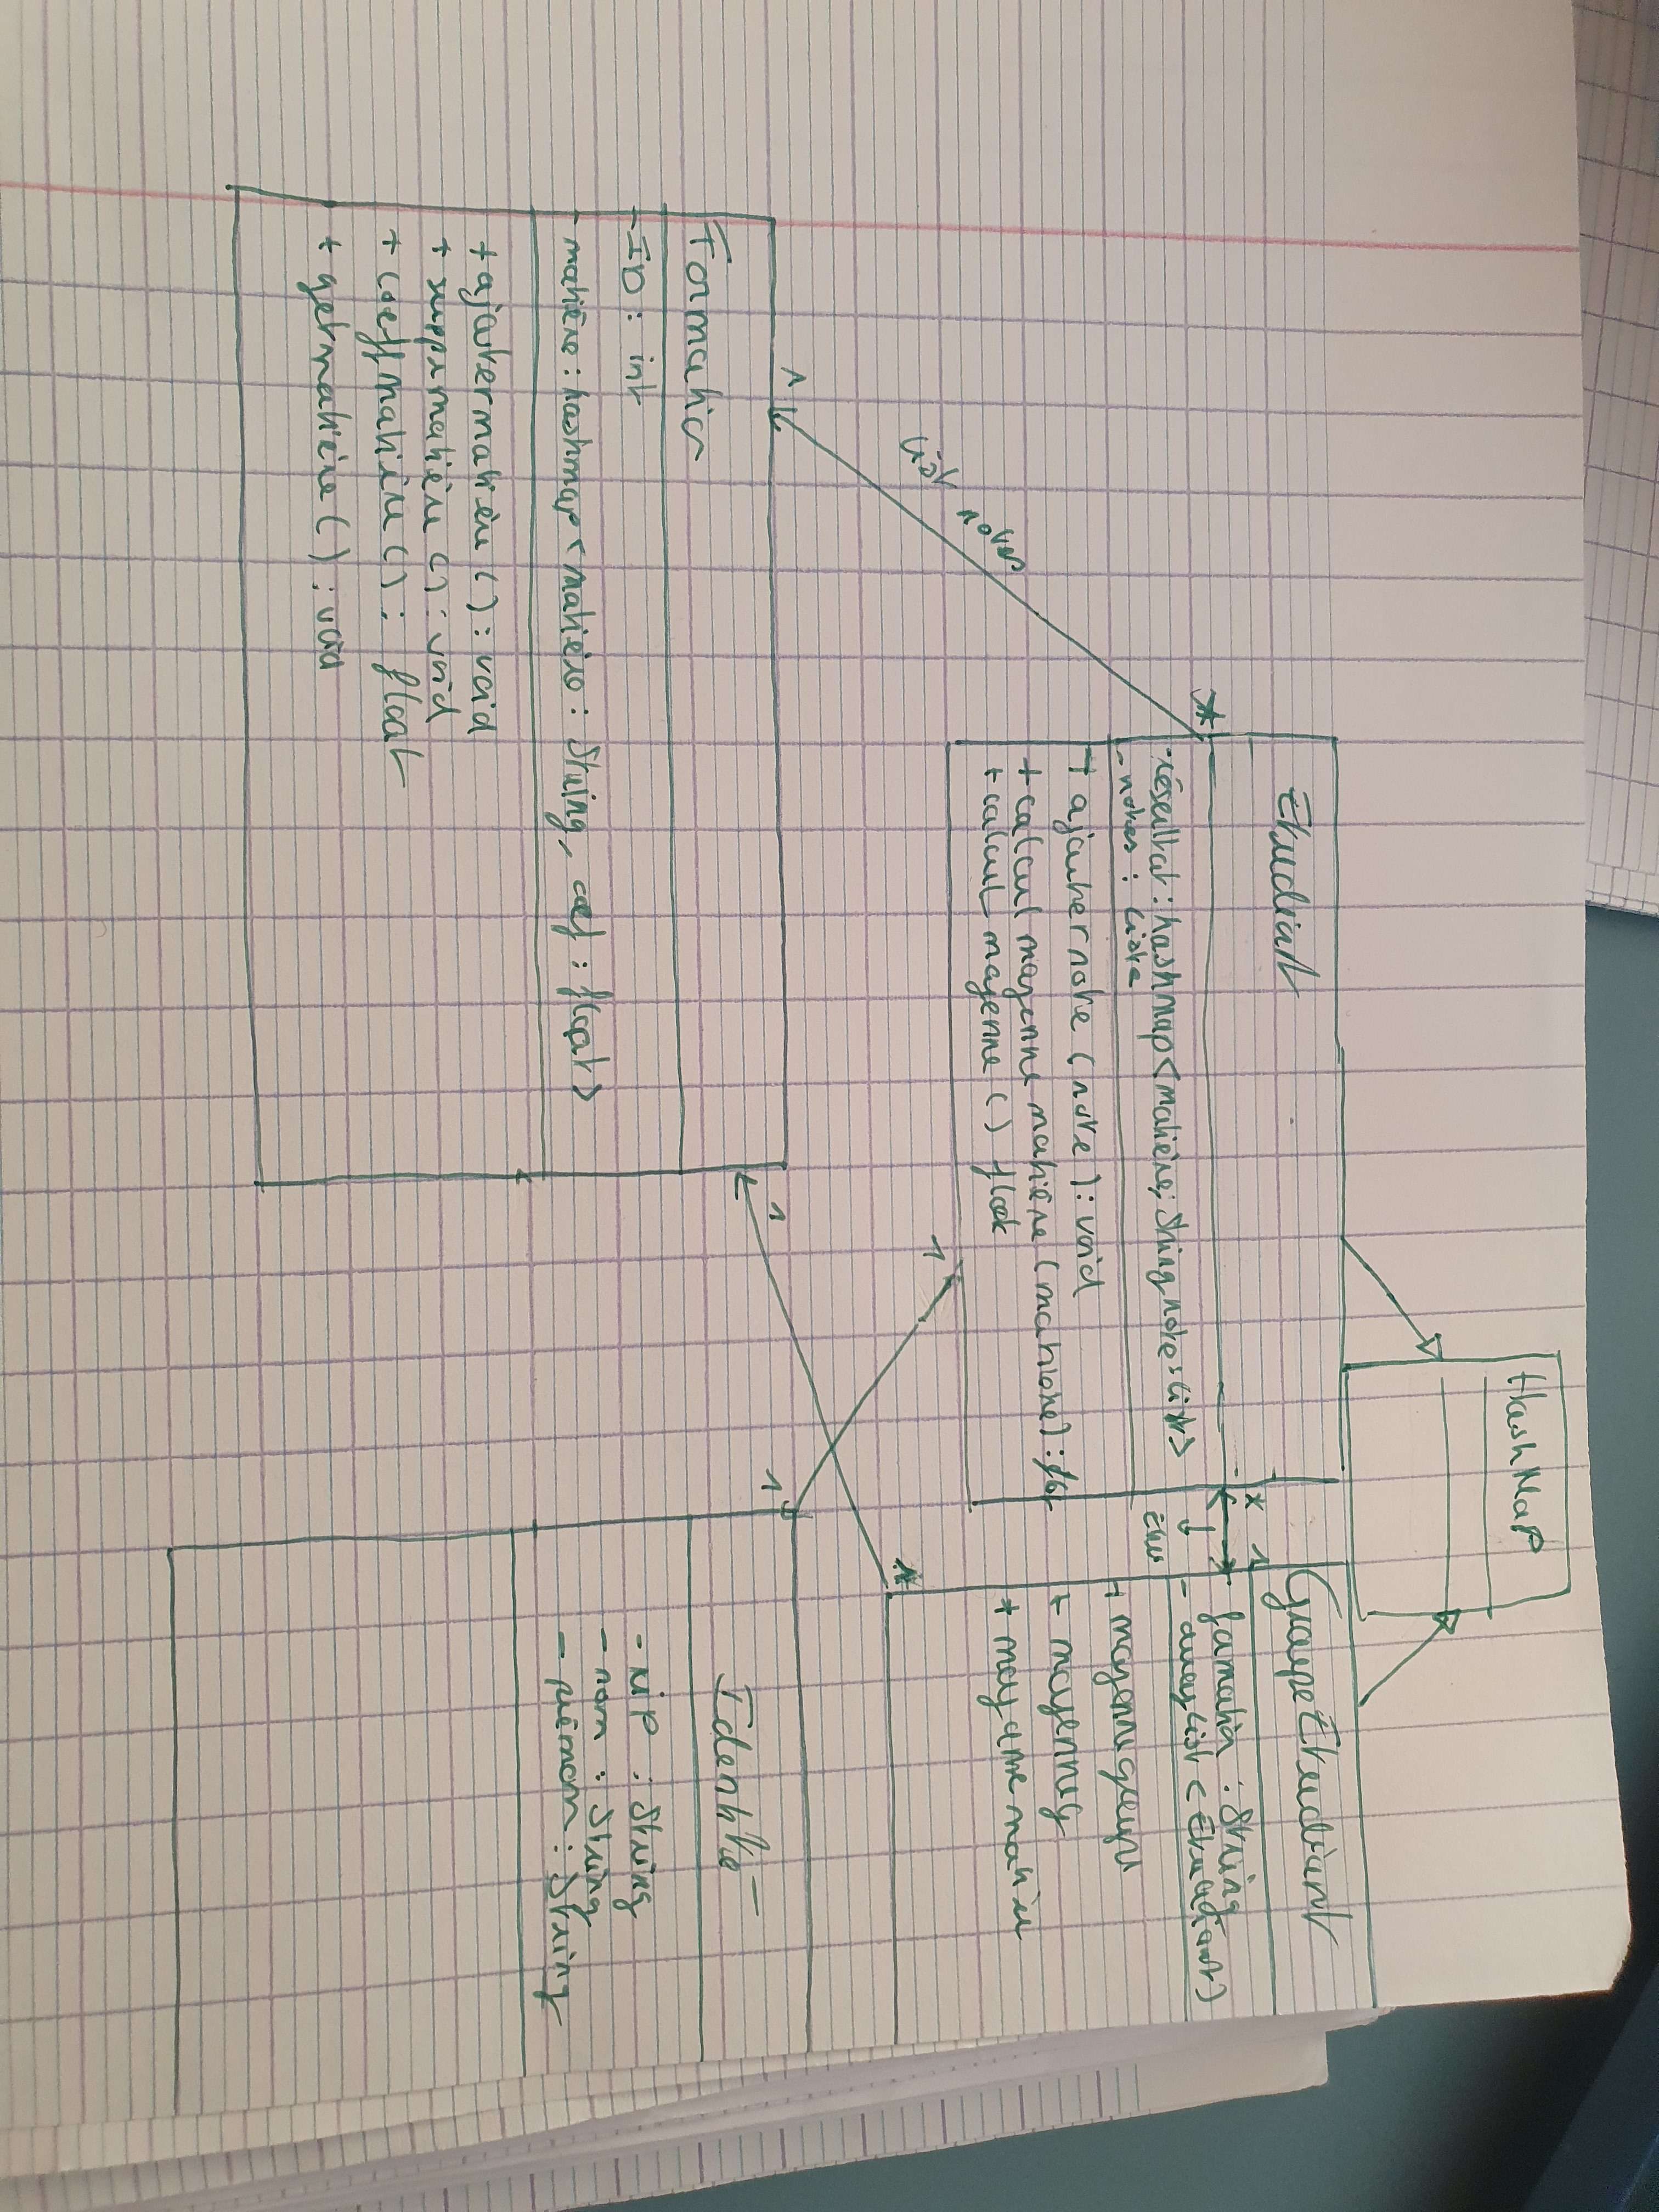 HashMap
Etudiant
- résultat : hashmap < matière : String note : list >
- notes : liste
+ ajouternote (note) : void
+ calcul moyenne matière (matière) :
+ calcul moyenne () float
* 1
GroupeEtudiant
- formation : String
- arraylist < Etudiant >
+ moyennegroupe
+ moyenneg
+ moyenne matière
*
list notes
1
1
*
1
1
Formation
- ID : int
- matière : hashmap < matière : String, coef : float >
+ ajoutermatière () : void
+ supprmatière () : void
+ coeffmatière () : float
+ getmatière () : void
Identité
- NIP : String
- nom : String
- prénom : String